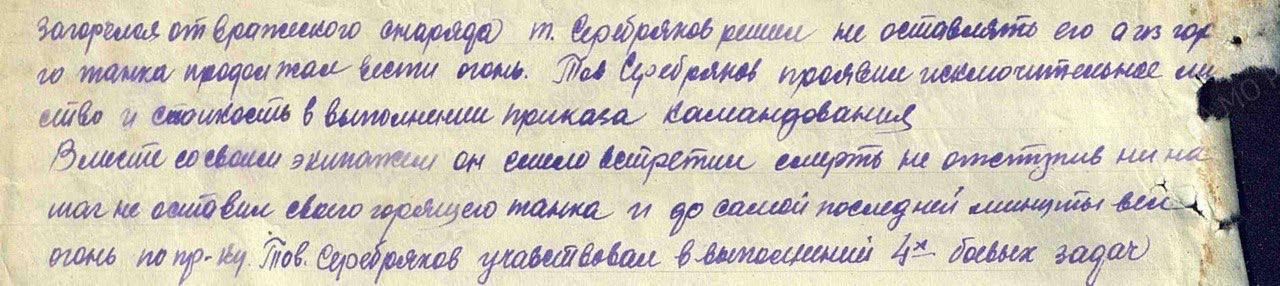 загорелся от вражеского снаряда т. Серебряков решил не оставлять его а из гор
го танка продолжал вести огонь. Тов Серебряков проявил исключительное му
ство и стойкость в выполнении приказа командования
Вместе со своим экипажем он смело встретил смерть не отступив ни на
шаг не оставил своего горящего танка и до самой последней минуты вел
огонь по пр-ку. Тов. Серебряков учавствовал в выполнений 4х боевых задач